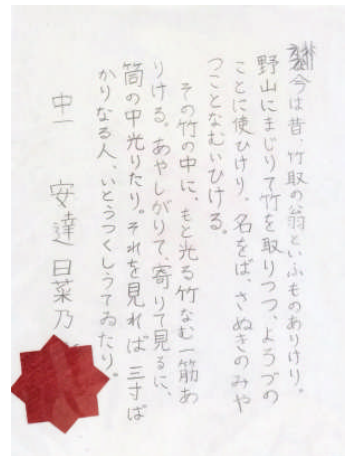 今は昔、竹取の翁といふものありけり。
野山にまじりて竹を取りつつ、よろづの
ことに使ひけり。名をば、さぬきのみや
つことなむいひける。
その竹の中に、もと光る竹なむ一筋あ
りける。あやしがりて、寄りて見るに、
筒の中光りたり。それを見れば三寸ば
かりなる人、いとうつくしうてゐたり。
中一 安達日菜乃